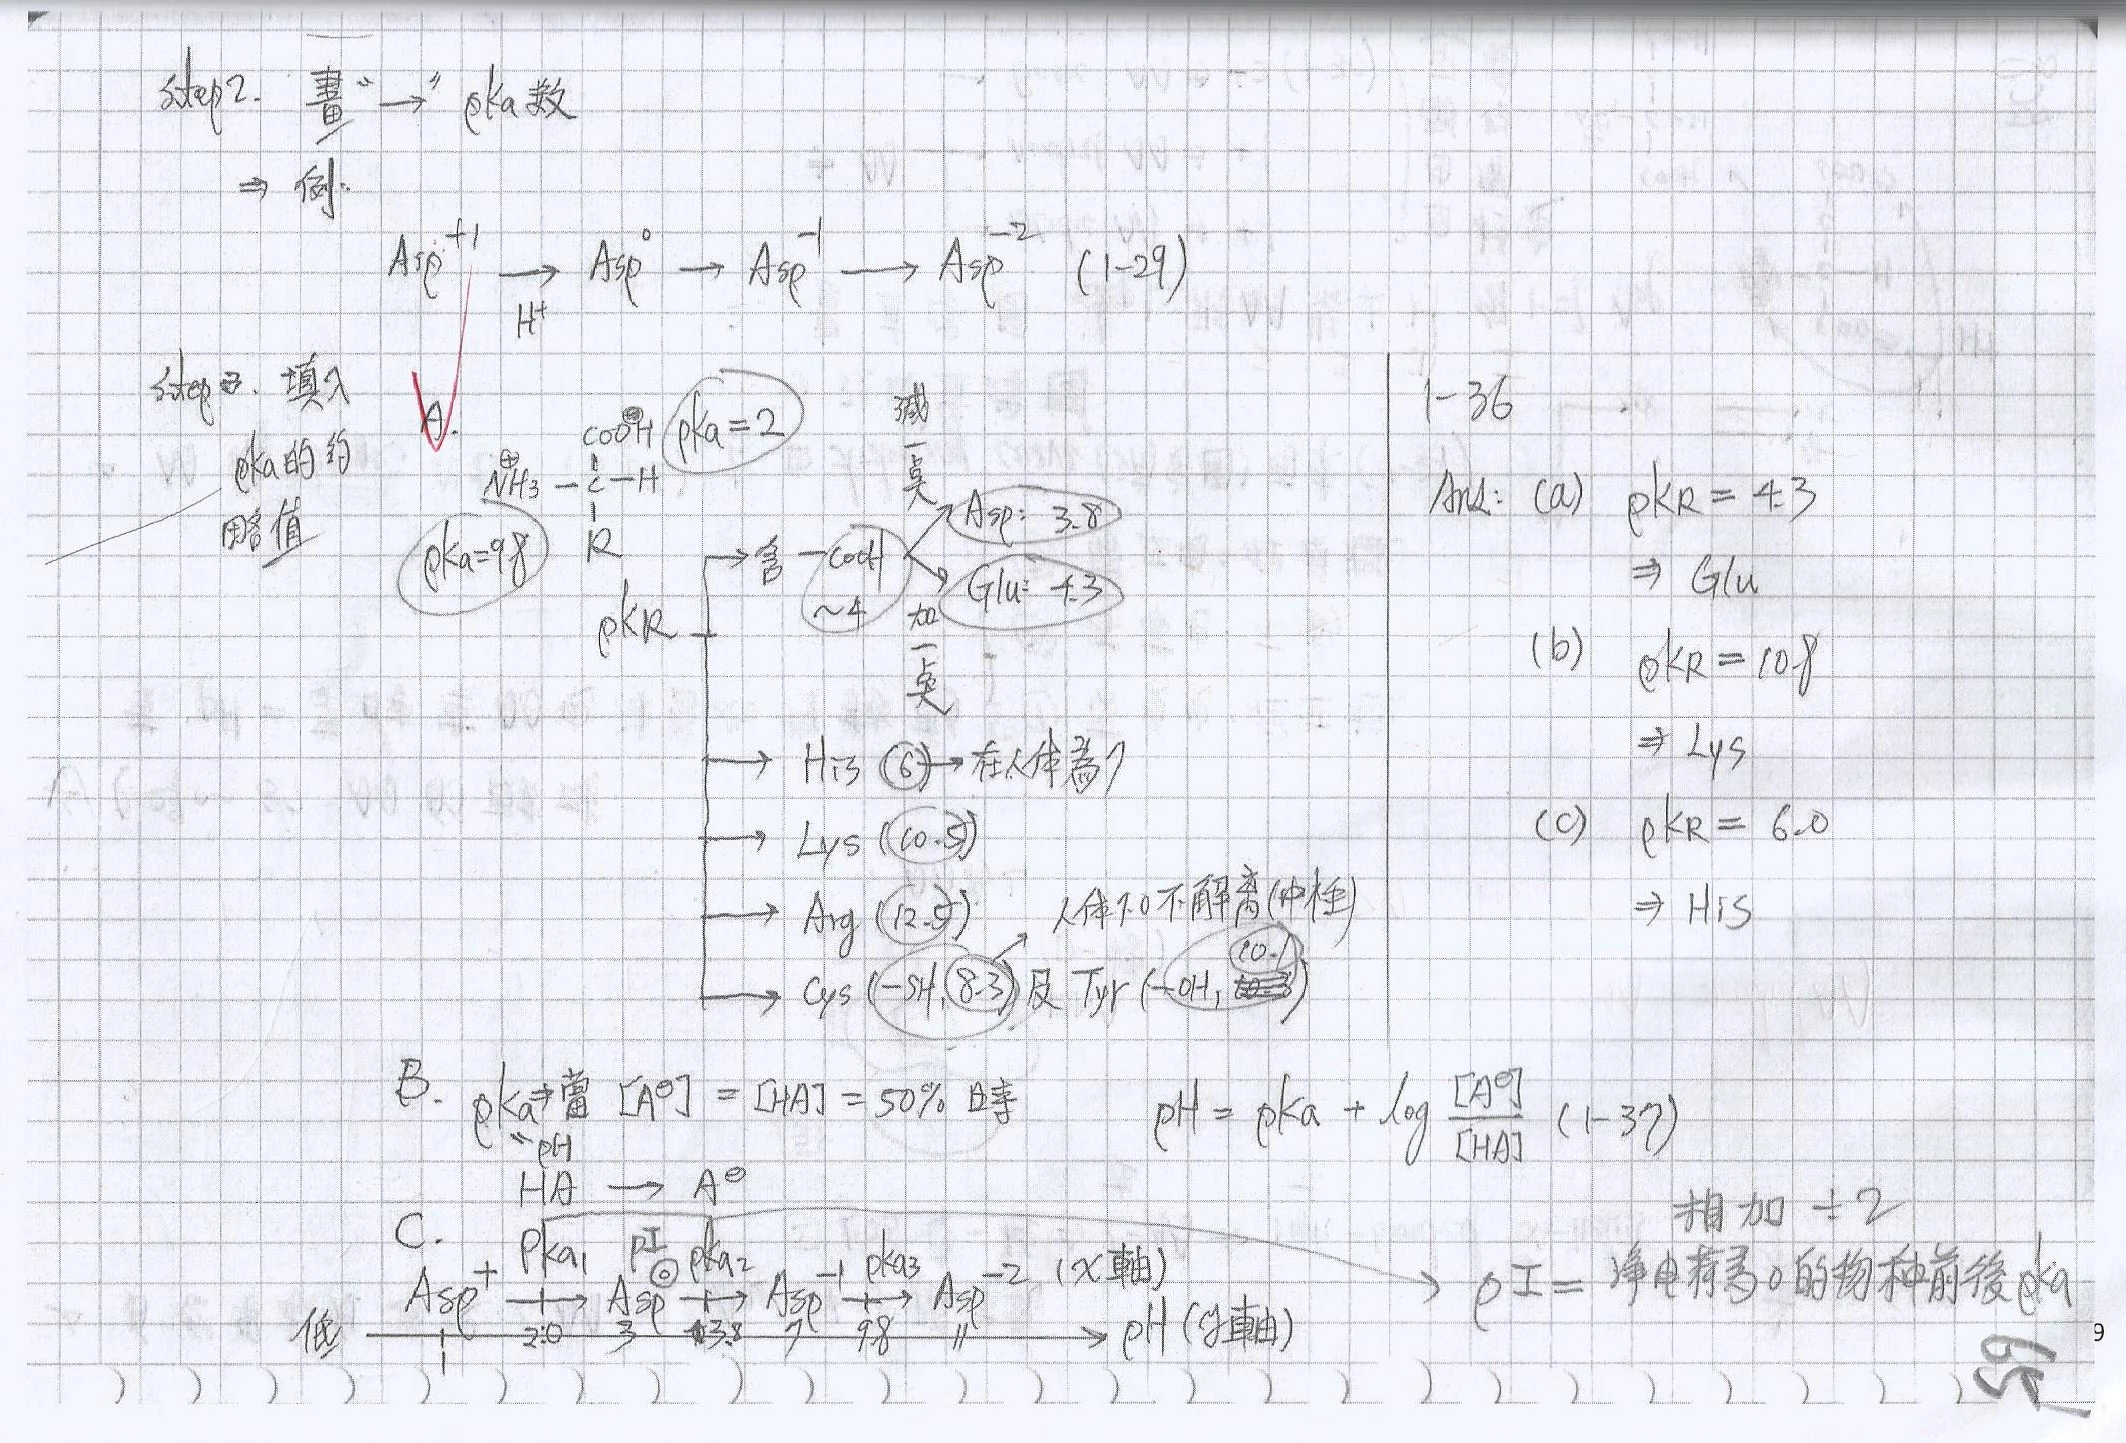 step2. 畫"→" pka数
⇒ 例:
Asp⁺¹ → Asp⁰ → Asp⁻¹ → Asp⁻² (1-29)
H⁺
step3. 填入
pka的約
略值
A.
COOH pka=2
⊕
NH₃ -C-H
R
pka=9.8
pKR
含 -COOH ~4
減一点
Asp: 3.8
Glu: 4.3
加一点
His (6) → 在人体為7
Lys (10.5)
Arg (12.5)
人体7.0不解离(中性)
Cys (-SH, 8.3) 及 Tyr (-OH, 10.1)
1-36
Ans: (a) pKR = 4.3
⇒ Glu
(b) pKR = 10.8
⇒ Lys
(c) pKR = 6.0
⇒ His
B. pka⇒當 [A⊖] = [HA] = 50% 時
"pH
pH = pka + log [A⊖]/[HA] (1-37)
HA → A⊖
C.
pka₁ pI pka₂ pka₃
Asp⁺ → Asp⁰ → Asp⁻¹ → Asp⁻² (x軸)
低 1 2.0 3 3.8 7 9.8 11 → pH (y軸)
相加 ÷2
pI = 净电荷為0的物种前後pka
9